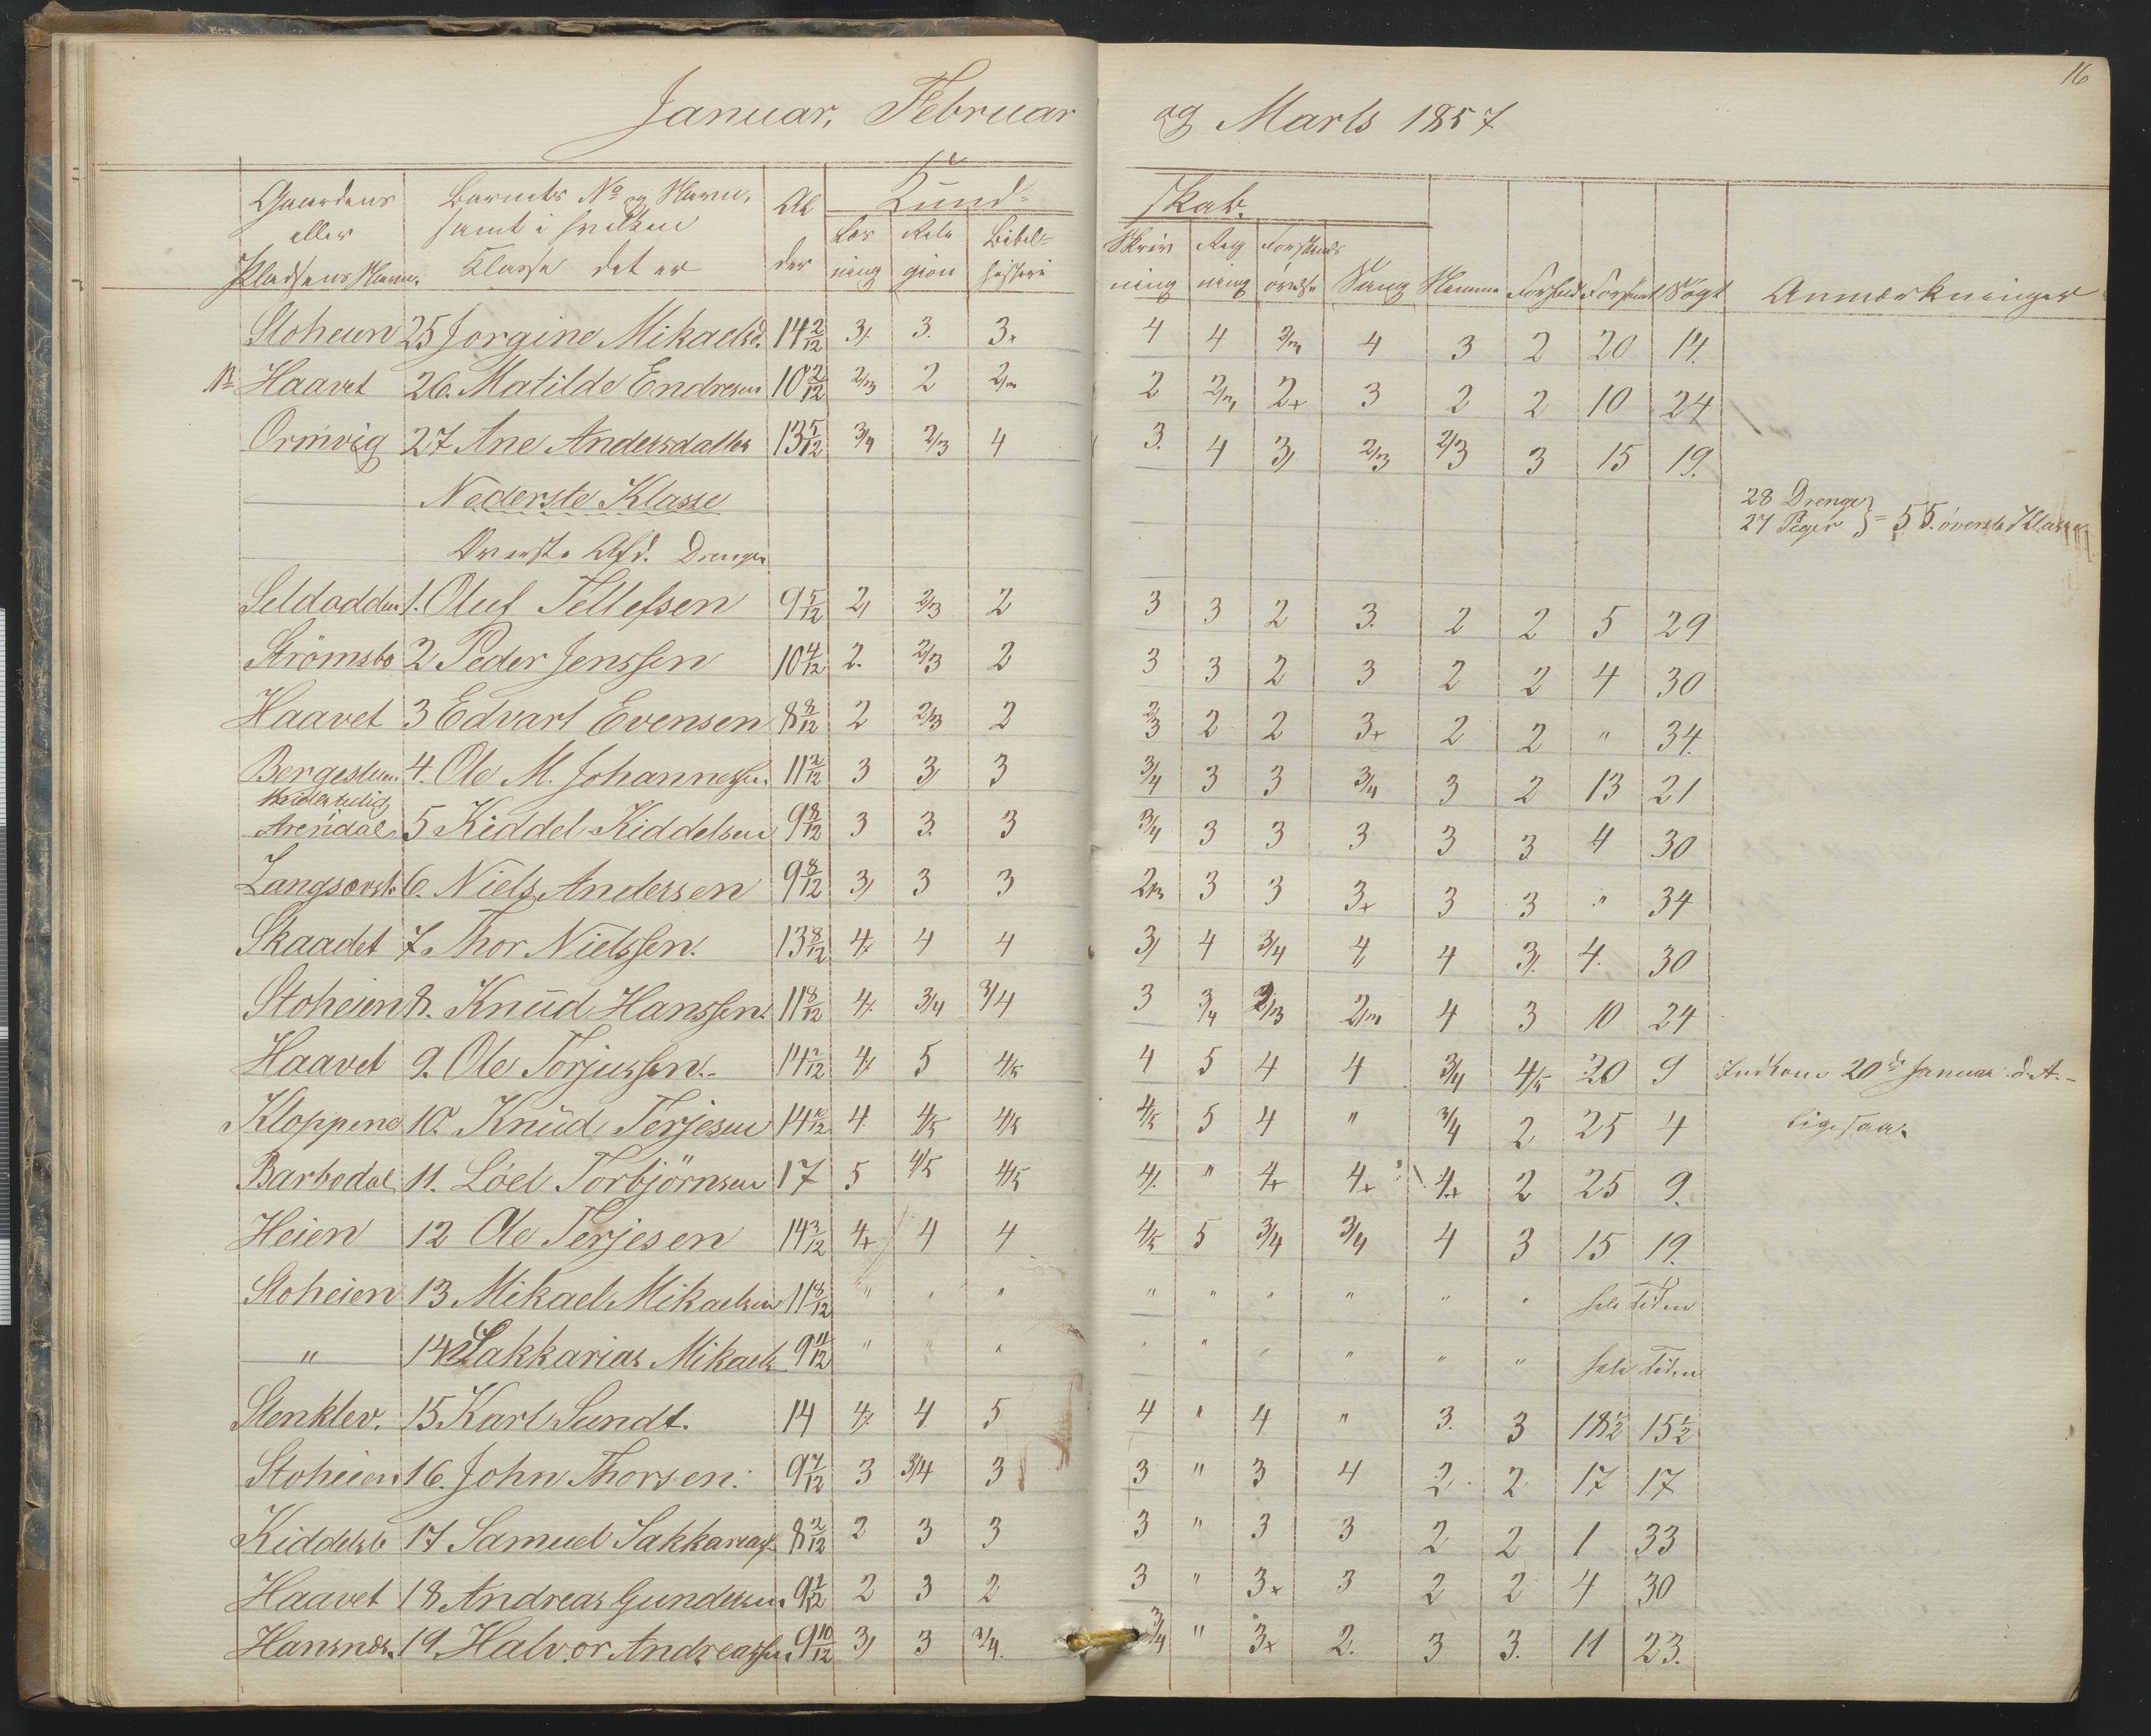 16
Januar, Februar og Marts 1857
Gaardens eller Pladsens Navn. | Barnets No og Navn, samt i hvilken Klasse det er | Alder | Kundskab. | Anmærkninger
Læsning | Religion | Bibelhistorie | Skrivning | Regning | Forstandsøvelse | Sang | Nemme | Forhold | Forsømt | Søgt
Stoheien 25 Jorgine Mikaelsd. 14 2/12 3/. 3. 3+ 4 4 2/3 4 3 2 20 14.
Haavet 26. Matilde Endresen 10 2/12 2/3 2 2/3 2 2/3 2+ 3 2 2 10 24
Ormvig 27 Ane Andersdatter 13 5/12 3/4 2/3 4 3. 4 3/ 2/3 2/3 3 15 19.
Nederste Klasse
28 Drenge
27 Piger } = 55. överste Klasse
Överste Afd. Drenge
Seldodden 1. Oluf Tellefsen 9 5/12 2/ 2/3 2 3 3 2 3. 2 2 5 29
Strömsbo 2 Peder Jenssen 10 4/12 2. 2/3 2 3 3 2 3 2 2 4 30
Haavet 3 Edvart Evensen 8 8/12 2 2/3 2 2/3 2 2 3+ 2 2 " 34.
4. Ole M. Johannessen. 11 2/12 3 3/ 3 3/4 3 3 3/4 3 2 13 21
Arendal 5 Kiddel Kiddelsen 9 8/12 3 3. 3 3/4 3 3 3 3 3 4 30
6. Niels Andersen 9 8/12 3/ 3 3 2/3 3 3 3+ 3 3 " 34
Skaadet 7. Thor Nielssen. 13 8/12 4/. 4 4 3/ 4 3/4 4/ 4 3/. 4. 30
Stoheien 8. Knud Hanssen. 11 8/12 4/. 3/4 3/4 3 3/4 2/3 2/3 4 3 10 24
Haavet 9. Ole Torjussen. 14 2/12 4/. 5 4/5 4 5 4 4 3/4 4/5 20 9 Indkom 20de Januar d. A.
Kloppene 10. Knud Terjesen 14 2/12 4. 4/5 4/5 4/5 5 4 " 3/4 2 25 4 ligesaa.
Barbodal 11. Löel Torbjörnsen 17 5 4/5 4/5 4/. " 4+ 4+ 4+ 2 25 9.
Heien 12 Ole Terjesen 14 3/12 4+ 4 4 4/5 5 3/4 3/4 4 3 15 19.
Stoheien 13 Mikael Mikaelsen 11 8/12 " " " " " " " " " hele Tiden
" 14 Sakkarias Mikaels 9 11/12 " " " " " " " " " hele Tiden
Stenklev. 15. Karl Sundt. 14 4/. 4 5 4 " 4 " 3. 3 18 1/2 15 1/2
Stoheien 16. John Thorsen. 9 7/12 3 3/4 3 3 " 3 4 2 2 17 17
17 Samuel Sakkarias 8 2/12 2 3 3 3 " 3 3 2 2 1 33
Haavet 18 Andreas Gundersen. 2 3 2 3 " 3+ 3 2 2 4 30
19. Halvor Andreassen. 9 10/12 3/ 3 3/4. 3/4 " 3+ 2. 3 3. 11 23.